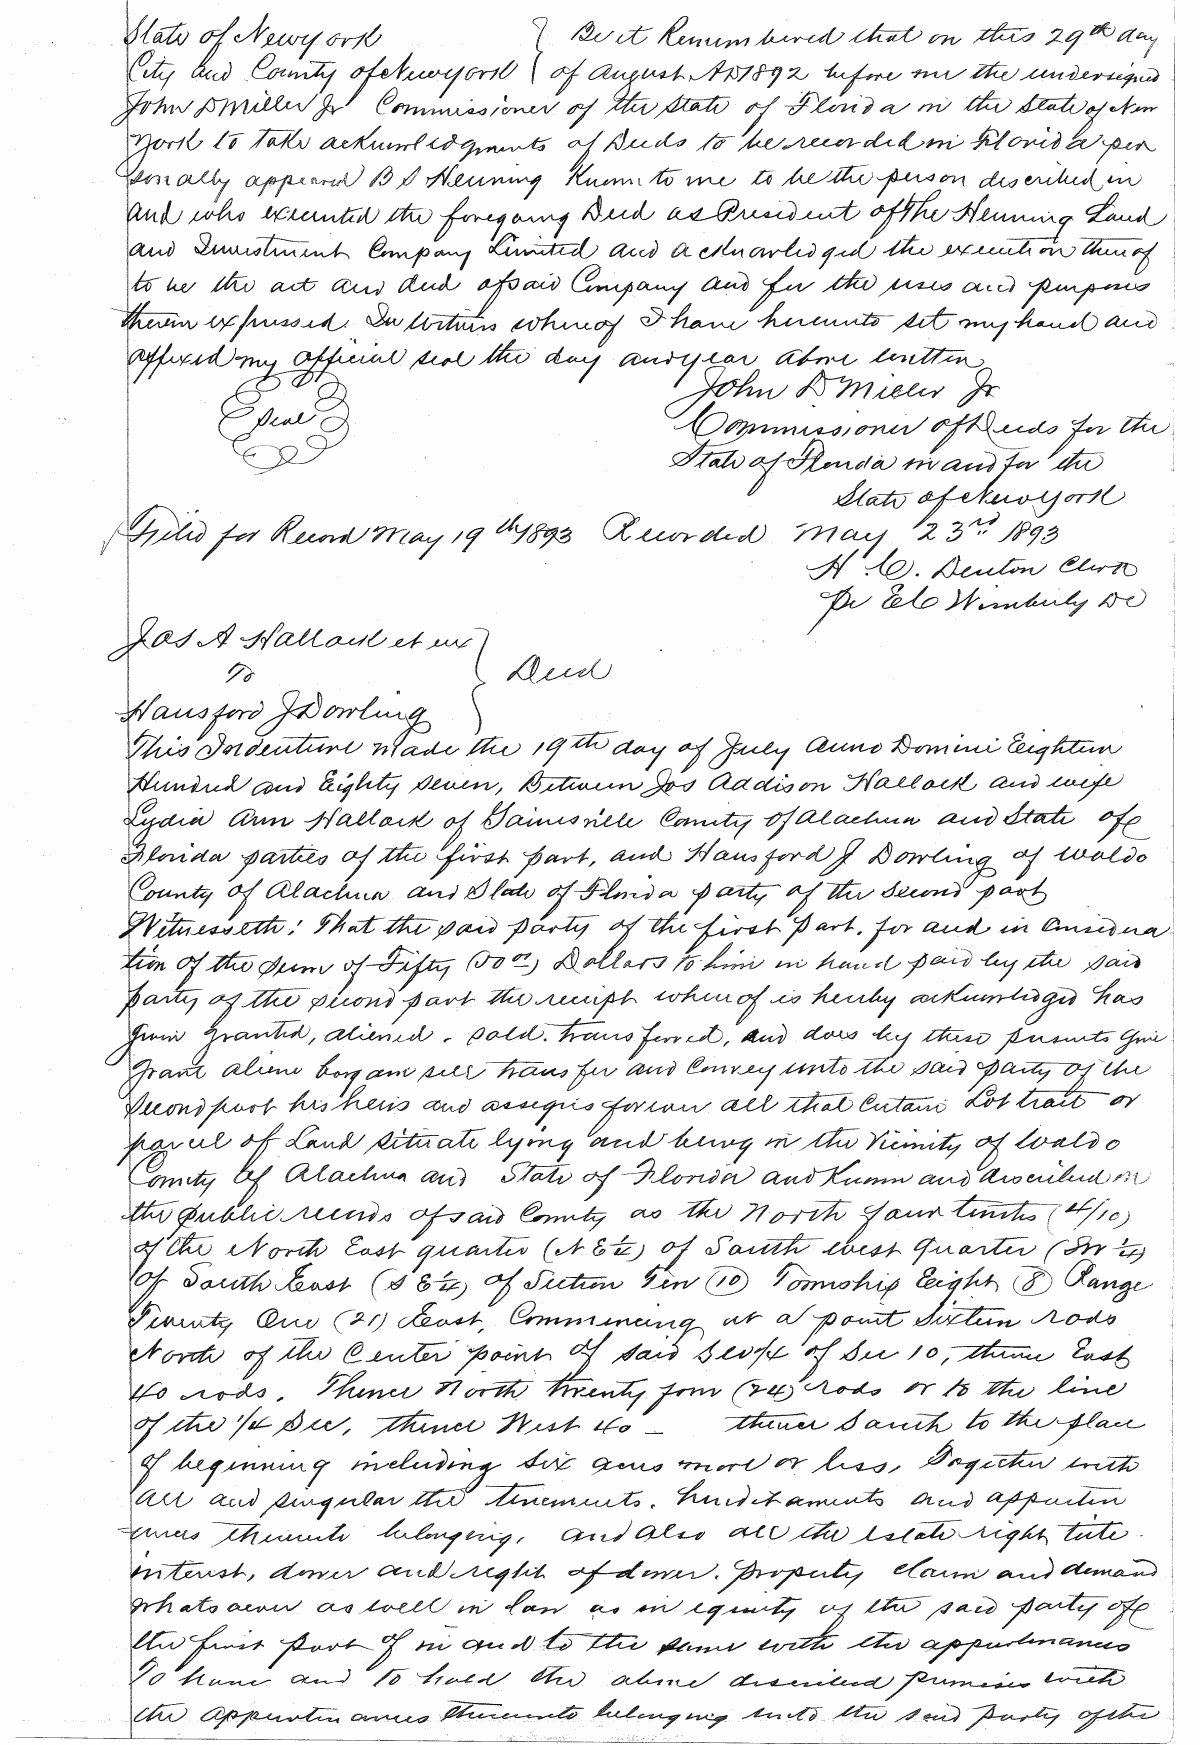 State of New york } Be it Remembered that on this 29th day
City and County of New york } of August AD 1892 before me the undersigned
John D Miller Jr Commissioner of the State of Florida in the State of New
York to take acknowledgments of Deeds to be recorded in Florida per
sonally appeared B S Henning Known to me to be the person described in
and who executed the foregoing Deed as President of The Henning Land
and Investment Company Limited and acknowledged the execution thereof
to be the act and deed of said Company and for the uses and purposes
therein expressed. In witness whereof I have hereunto set my hand and
affixed my official seal the day and year above written
John D Miller Jr
Seal
Commissioner of Deeds for the
State of Florida in and for the
State of New York
Filed for Record May 19th 1893 Recorded May 23rd 1893
H. C. Denton Clerk
Pr E C Wimberly DC
Jas A Hallock et ux }
To } Deed
Hansford J Dowling
This Indenture made the 19th day of July Anno Domini Eighteen
Hundred and Eighty seven, Between Jos Addison Hallock and wife
Lydia Ann Hallock of Gainesville County of Alachua and State of
Florida parties of the first part, and Hansford J Dowling of Waldo
County of Alachua and State of Florida party of the second part
Witnesseth: That the said party of the first part, for and in Considera
tion of the sum of Fifty (50 00) Dollars to him in hand paid by the said
party of the second part the receipt whereof is hereby acknowledged has
given granted, aliened, sold, transferred, and does by these presents Give
grant aliene bargain sell transfer and Convey unto the said party of the
second part his heirs and assigns forever all that Certain Lot tract or
parcel of Land situate lying and being in the Vicinity of Waldo
County of Alachua and State of Florida and Known and described on
the public records of said County as the North four tenths (4/10)
of the North East quarter (N E 1/4) of South West Quarter (SW 1/4)
of South East (S E 1/4) of Section Ten (10) Township Eight (8) Range
Twenty One (21) East, Commencing at a point Sixteen rods
North of the Center point of said SW 1/4 of Sec 10, thence East
40 rods. Thence North twenty four (24) rods or to the line
of the 1/4 Sec, thence West 40 – thence South to the place
of beginning including six acres more or less, Together with
all and singular the tenements, hereditaments and appurten
ances thereunto belonging, and also all the estate right title
interest, dower and right of dower, property claim and demand
whatsoever as well in law as in equity of the said party of
the first part of in and to the same with the appurtenances
To have and to hold the above described premises with
the appurtenances thereunto belonging unto the said party of the